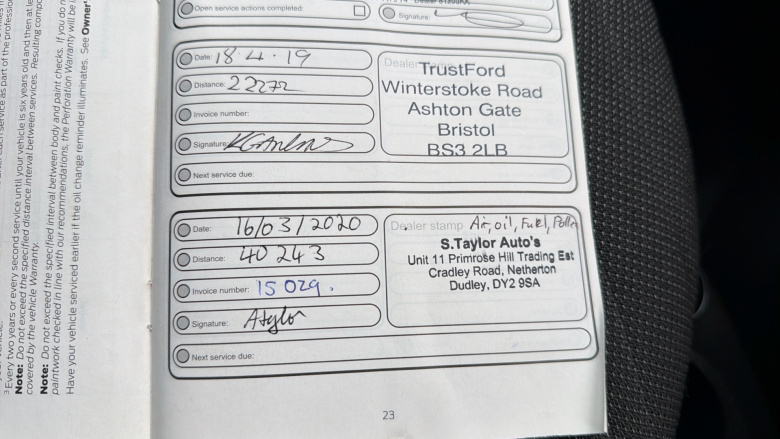 Open service actions completed:
Signature:
Date: 18 4 · 19
Distance: 22272
Invoice number:
Signature:
Next service due:
Dealer
TrustFord
Winterstoke Road
Ashton Gate
Bristol
BS3 2LB
Date: 16/03/2020
Distance: 40243
Invoice number: 15029.
Signature: Ataylor
Next service due:
Dealer stamp Air, oil, Fuel, Pollen
S.Taylor Auto's
Unit 11 Primrose Hill Trading Est
Cradley Road, Netherton
Dudley, DY2 9SA
23
³ Every two years or every second service until your vehicle is six years old and then at
Note: Do not exceed the specified distance interval between services. Resulting
covered by the vehicle Warranty.
Note: Do not exceed the specified interval between body and paint checks. If you do
paintwork checked in line with our recommendations, the Perforation Warranty will be
Have your vehicle serviced earlier if the oil change reminder illuminates. See Owner'